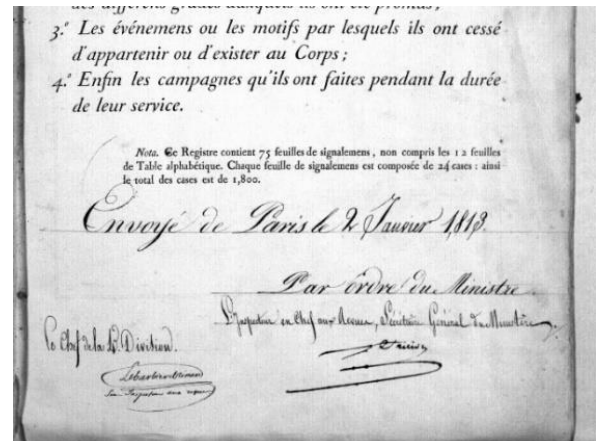 des différens grades auxquels ils ont été promus;
3.° Les événemens ou les motifs par lesquels ils ont cessé
d'appartenir ou d'exister au Corps;
4.° Enfin les campagnes qu'ils ont faites pendant la durée
de leur service.
Nota. Ce Registre contient 75 feuilles de signalemens, non compris les 12 feuilles
de Table alphabétique. Chaque feuille de signalemens est composée de 24 cases : ainsi
le total des cases est de 1,800.
Envoyé de Paris le 2 Janvier 1813.
Par ordre du Ministre
L'Inspecteur en Chef aux Revues, Secrétaire Général du Ministère
Le Chef de la Division.